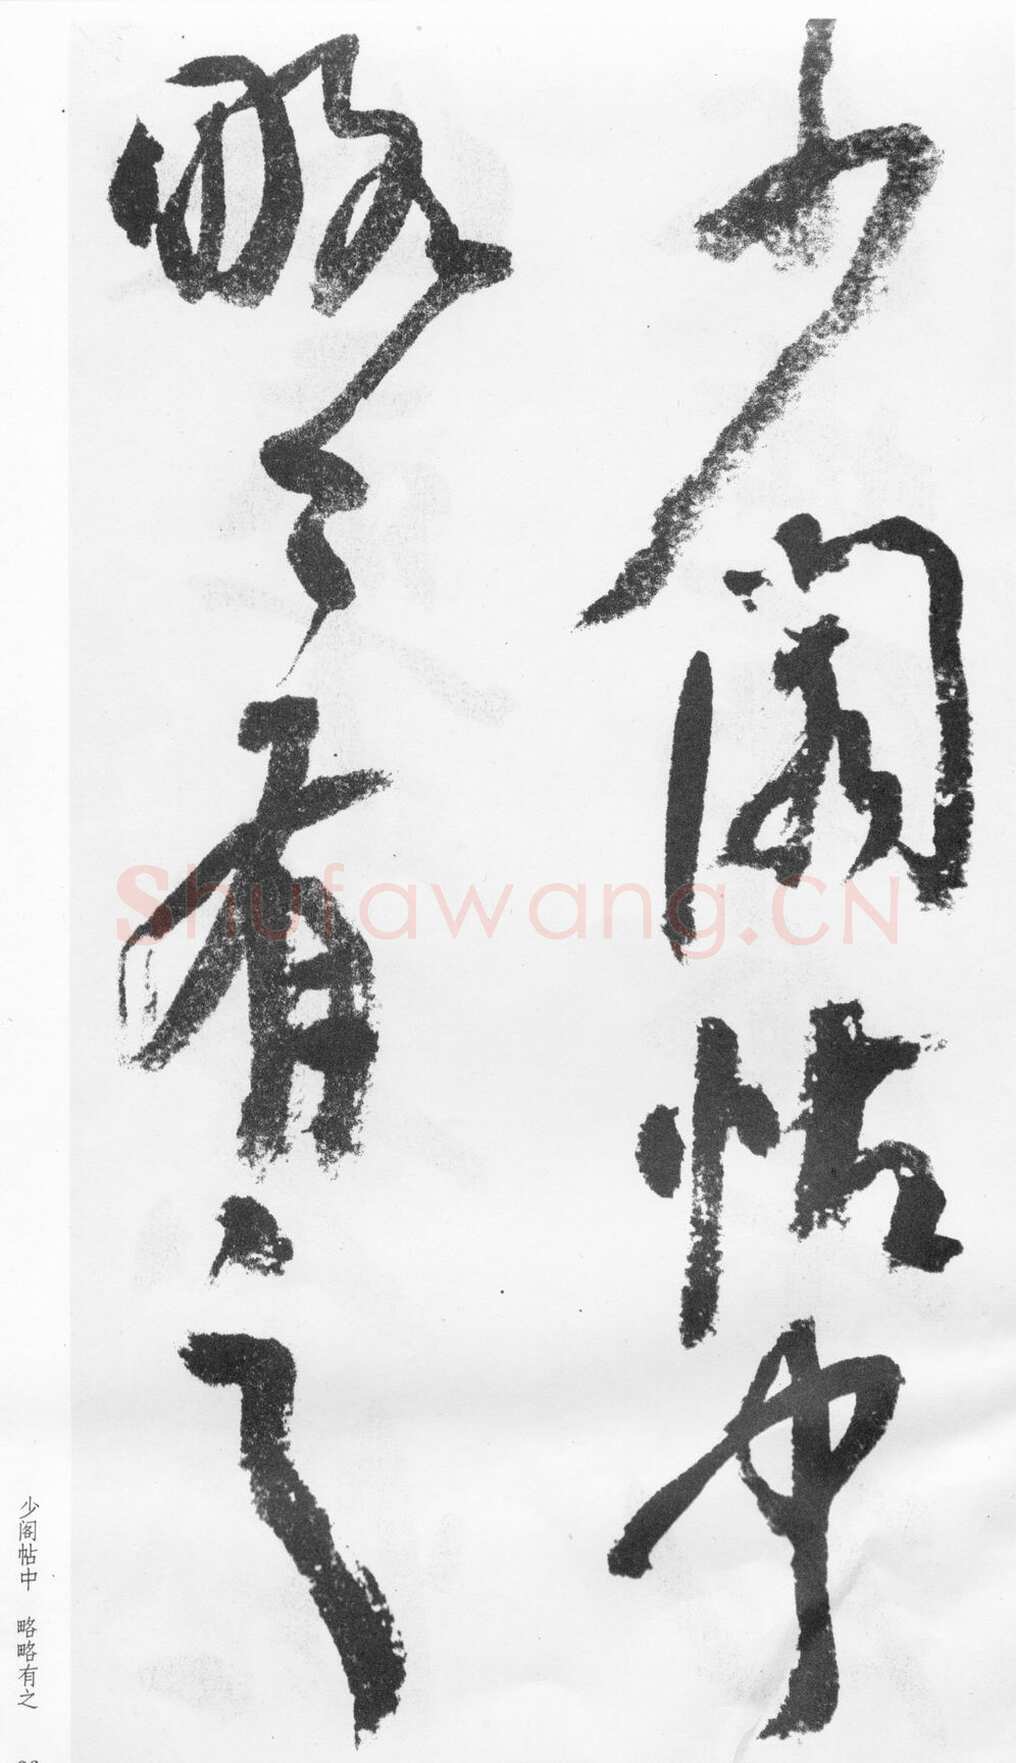 少阁帖中
略々有之
少阁帖中　略略有之
Shufawang.CN